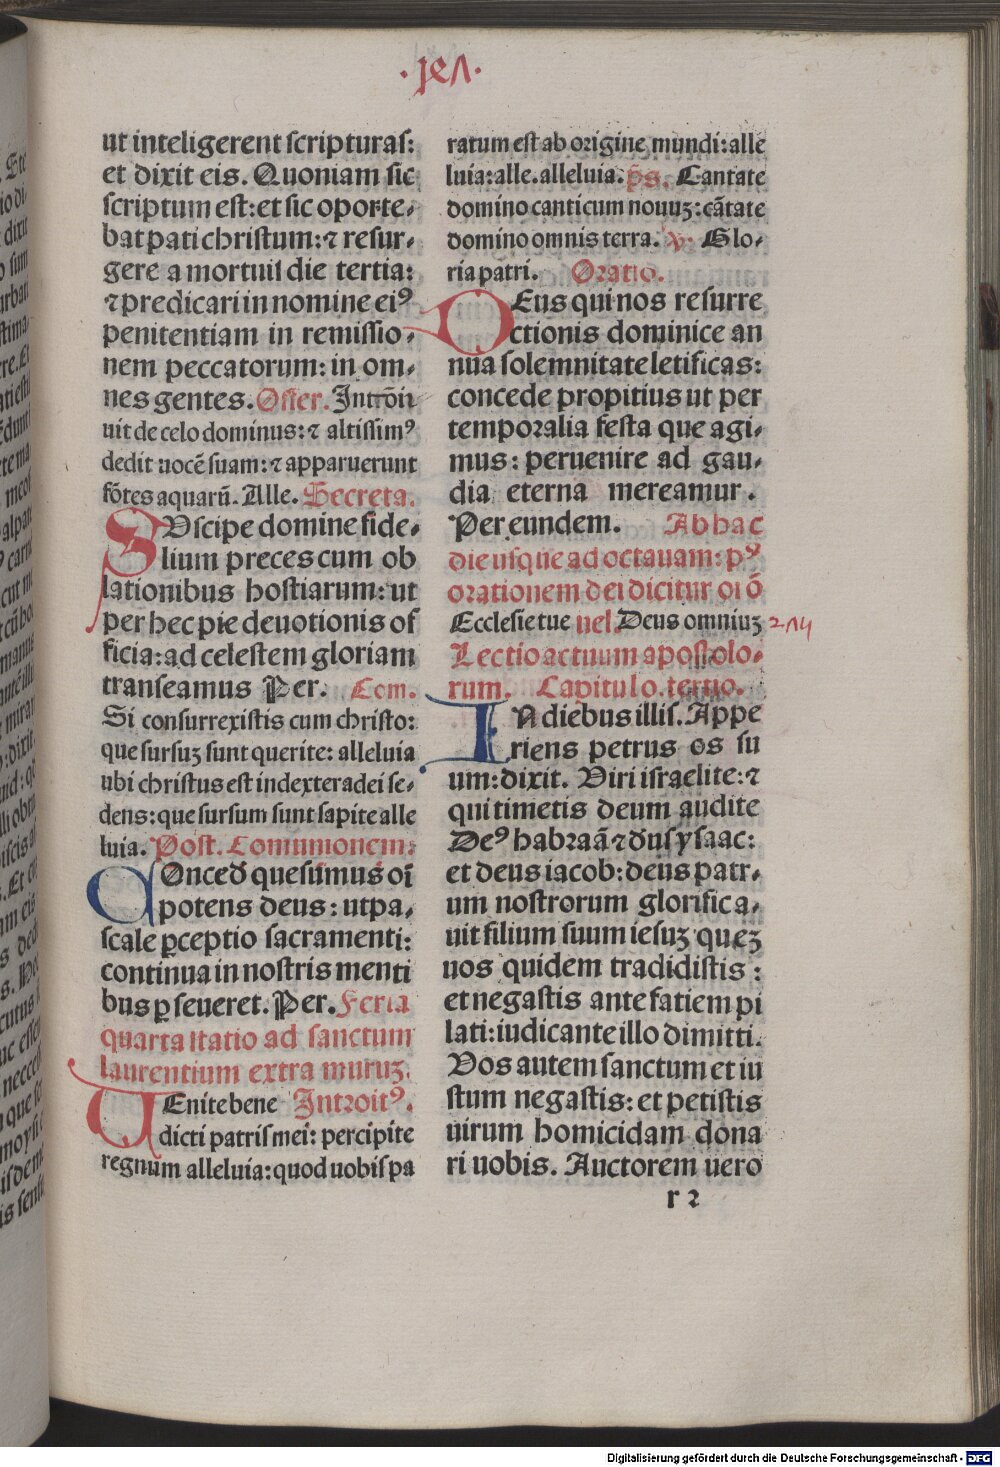 ut inteligerent scripturas:
et dixit eis. Quoniam sic
scriptum est: et sic oporte-
bat pati christum: ⁊ resur-
gere a mortuis die tertia:
⁊ predicari in nomine eiꝰ
penitentiam in remissio-
nem peccatorum: in om-
nes gentes. Offer. Intrõn
uit de celo dominus: ⁊ altissimꝰ
dedit uocẽ suam: ⁊ apparuerunt
fõtes aquarũ. Alle. Secreta.
SUscipe domine fide-
lium preces cum ob
lationibus hostiarum: ut
per hec pie deuotionis of
ficia: ad celestem gloriam
transeamus Per. Com.
Si consurrexistis cum christo:
que sursuꝫ sunt querite: alleluia
ubi christus est in dextera dei se-
dens: que sursum sunt sapite alle
luia. Post. Comunionem:
COnced quesumus oĩ
potens deus: ut pa-
scale ꝑceptio sacramenti:
continua in nostris menti
bus ꝑseueret. Per. Feria
quarta statio ad sanctum
laurentium extra muruꝫ.
UEnite bene Introitꝰ.
dicti patris mei: percipite
regnum alleluia: quod uobis pa
ratum est ab origine mundi: alle
luia: alle. alleluia. p̃s. Cantate
domino canticum nouuꝫ: cãtate
domino omnis terra. ℣. Glo-
ria patri. Oratio.
DEus qui nos resurre
ctionis dominice an
nua solemnitate letificas:
concede propitius ut per
temporalia festa que agi-
mus: peruenire ad gau-
dia eterna mereamur.
Per eundem. Ab hac
die usque ad octauam: pꝰ
orationem dei dicitur oĩ õ
Ecclesie tue uel. Deus omniuꝫ
Lectio actuum apostolo-
rum. Capitulo. tertio.
IN diebus illis. Appe
riens petrus os su
um: dixit. Viri israelite: ⁊
qui timetis deum audite
Deꝰ habraã ⁊ dũs ysaac:
et deus iacob: deus patr-
um nostrorum glorifica-
uit filium suum iesuꝫ queꝫ
uos quidem tradidistis:
et negastis ante fatiem pi
lati: iudicante illo dimitti.
Vos autem sanctum et iu
stum negastis: et petistis
uirum homicidam dona
ri uobis. Auctorem uero
r 2
Digitalisierung gefördert durch die Deutsche Forschungsgemeinschaft - DFG